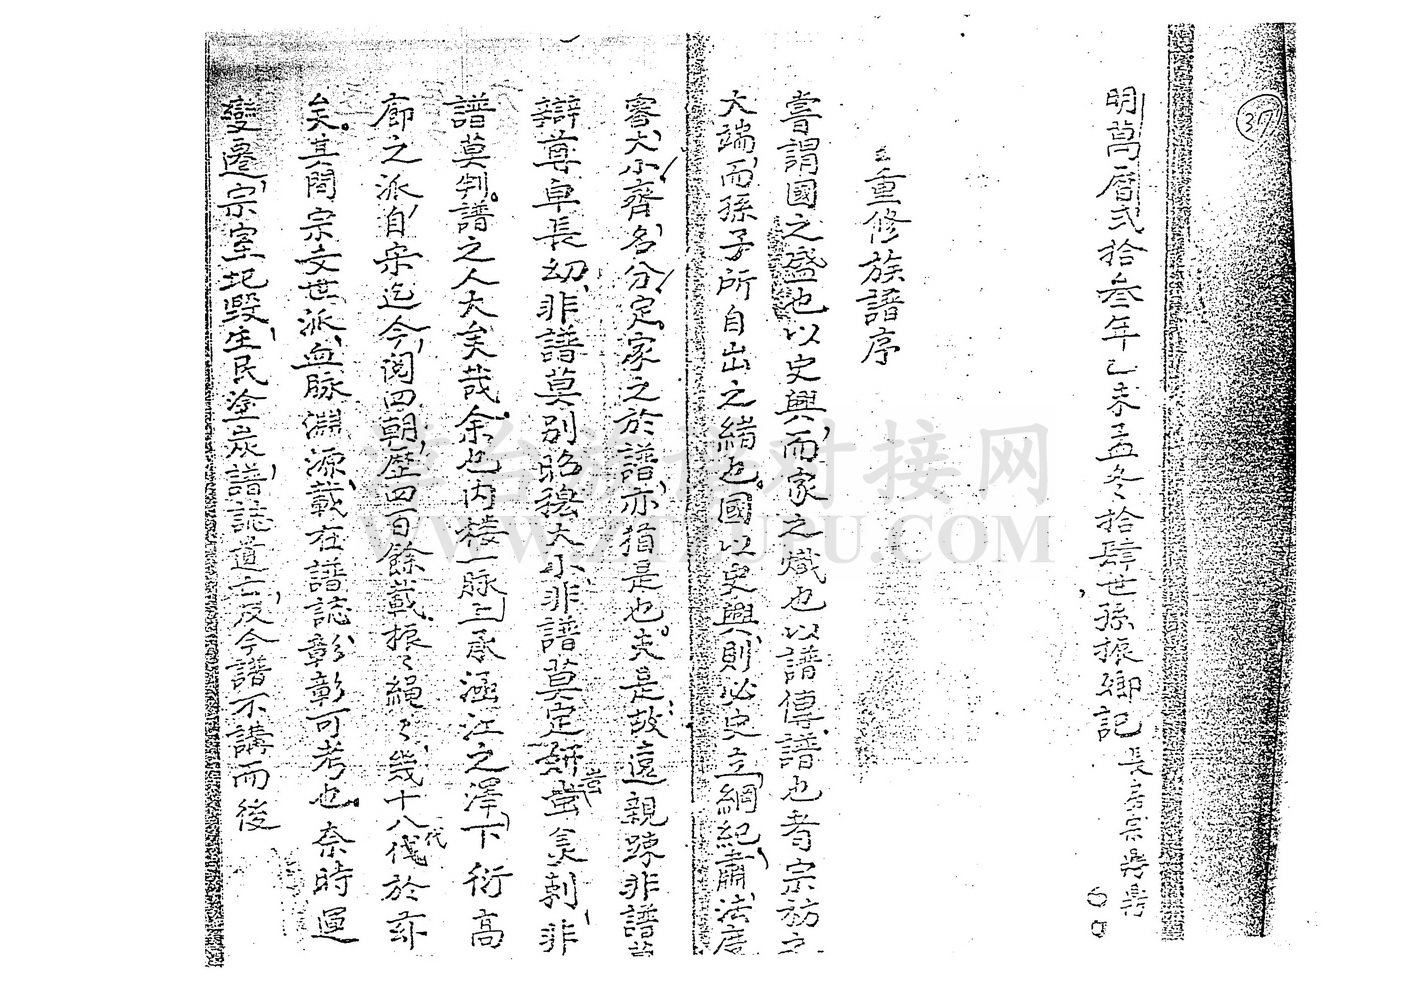 37
明萬曆弍拾叁年乙未孟冬拾肆世孫振鄉記
長房宗
重修族譜序
嘗謂國之盛也以史興而家之熾也以譜傳譜也者宗祊之
大端而孫子所自出之緒也國以史興則必史立綱紀肅法度
審大小齊名分定家之於譜亦猶是也夫是故遠親踈非譜莫
辯尊卑長幼非譜莫別昭穆大小非譜莫定妍蚩美剌非
譜莫判譜之人大矣哉余也内楼一脉上承涵江之澤下衍高
廊之派自宋迄今閲四朝歷四百餘載振々繩々幾十八代於玆
代
矣其間宗支世派血脉淵源載在譜誌彰彰可考也奈時運
變遷宗室圮毀生民塗炭譜誌道亡及今譜不講而後
漳台族谱对接网
WWW.ZTZUPU.COM